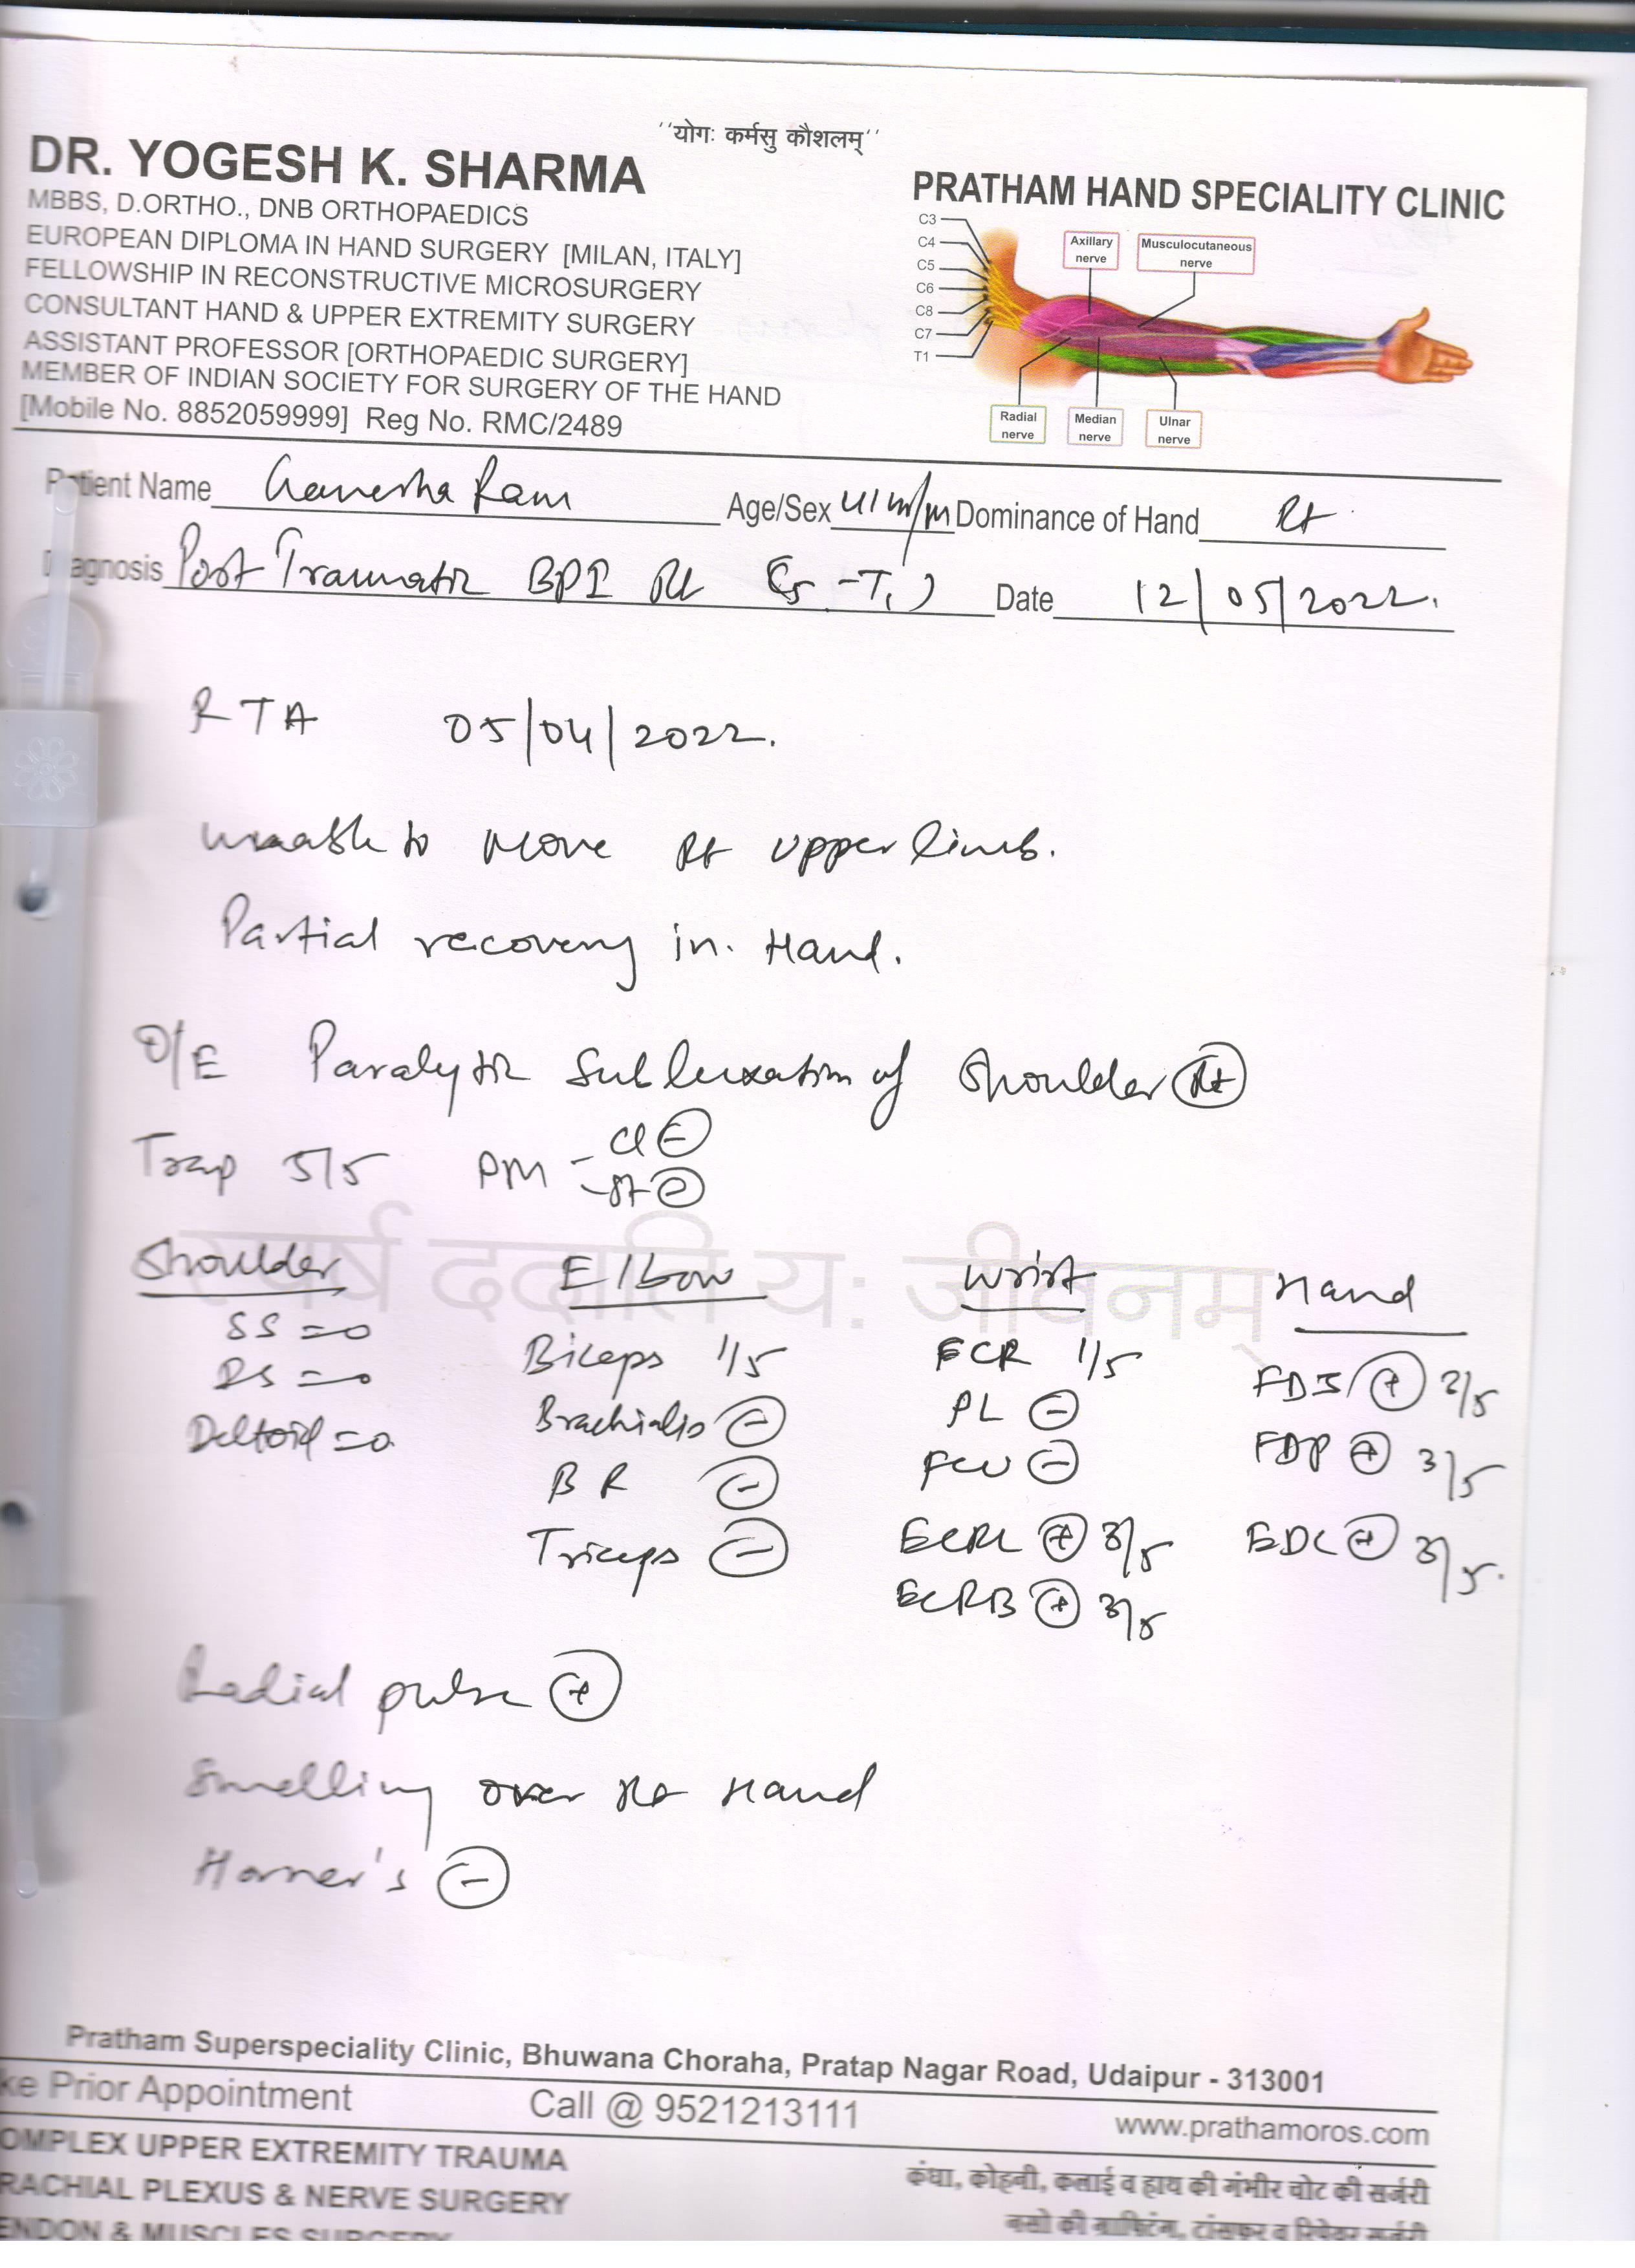 "योगः कर्मसु कौशलम्"
DR. YOGESH K. SHARMA
MBBS, D.ORTHO., DNB ORTHOPAEDICS
EUROPEAN DIPLOMA IN HAND SURGERY [MILAN, ITALY]
FELLOWSHIP IN RECONSTRUCTIVE MICROSURGERY
CONSULTANT HAND & UPPER EXTREMITY SURGERY
ASSISTANT PROFESSOR [ORTHOPAEDIC SURGERY]
MEMBER OF INDIAN SOCIETY FOR SURGERY OF THE HAND
[Mobile No. 8852059999] Reg No. RMC/2489
PRATHAM HAND SPECIALITY CLINIC
C3
C4
C5
C6
C8
C7
T1
Axillary
nerve
Musculocutaneous
nerve
Radial
nerve
Median
nerve
Ulnar
nerve
Patient Name Ganesha Ram Age/Sex /m Dominance of Hand Rt
Diagnosis Post Traumatic BPI Rt C5-T1) Date 12/05/2022.
RTA 05/04/2022.
unable to move Rt upper limb.
Partial recovery in Hand.
O/E Paralytic Subluxation of Shoulder Rt
Trap 5/5 PM - Cl -
- St -
स्पर्ष ददाति यः जीवनम्
Shoulder Elbow Wrist Hand
SS = 0 Biceps 1/5 FCR 1/5 FDS + 2/5
= 0 Brachialis - PL - FDP + 3/5
Deltoid = 0 BR - FCU - EDC + 3/5.
Triceps - ECRL + 3/5
ECRB + 3/5
Radial pulse +
Swelling over Rt Hand
Horner's -
Pratham Superspeciality Clinic, Bhuwana Choraha, Pratap Nagar Road, Udaipur - 313001
ke Prior Appointment Call @ 9521213111 www.prathamoros.com
OMPLEX UPPER EXTREMITY TRAUMA
RACHIAL PLEXUS & NERVE SURGERY
ENDON & MUSCLES SURGERY
कंधा, कोहनी, कलाई व हाथ की गंभीर चोट की सर्जरी
नसो की ग्राफ्टिंग, टांसफर व रिपेयर सर्जरी